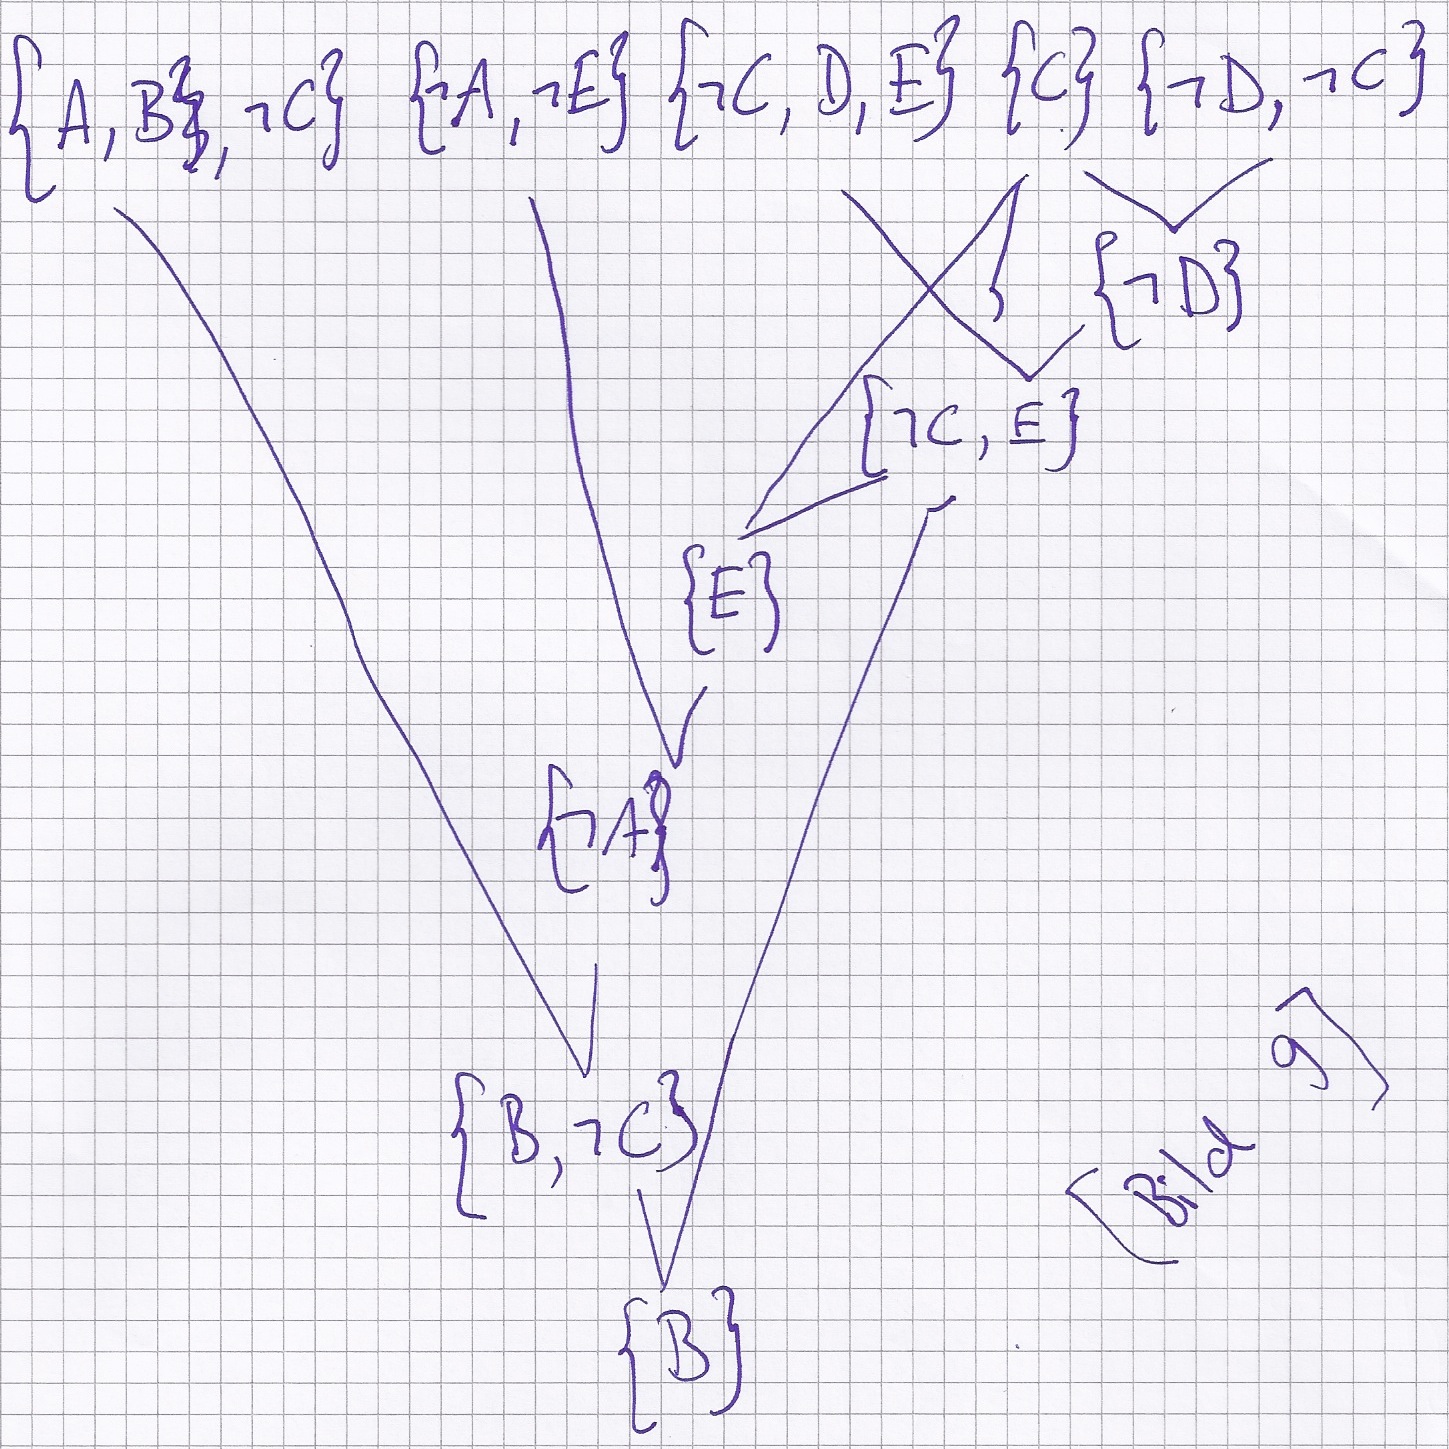 {A, B, ¬C} {¬A, ¬E} {¬C, D, E} {C} {¬D, ¬C}
{¬D}
{¬C, E}
{E}
{¬A}
{B, ¬C}
{B}
[Bild 9]